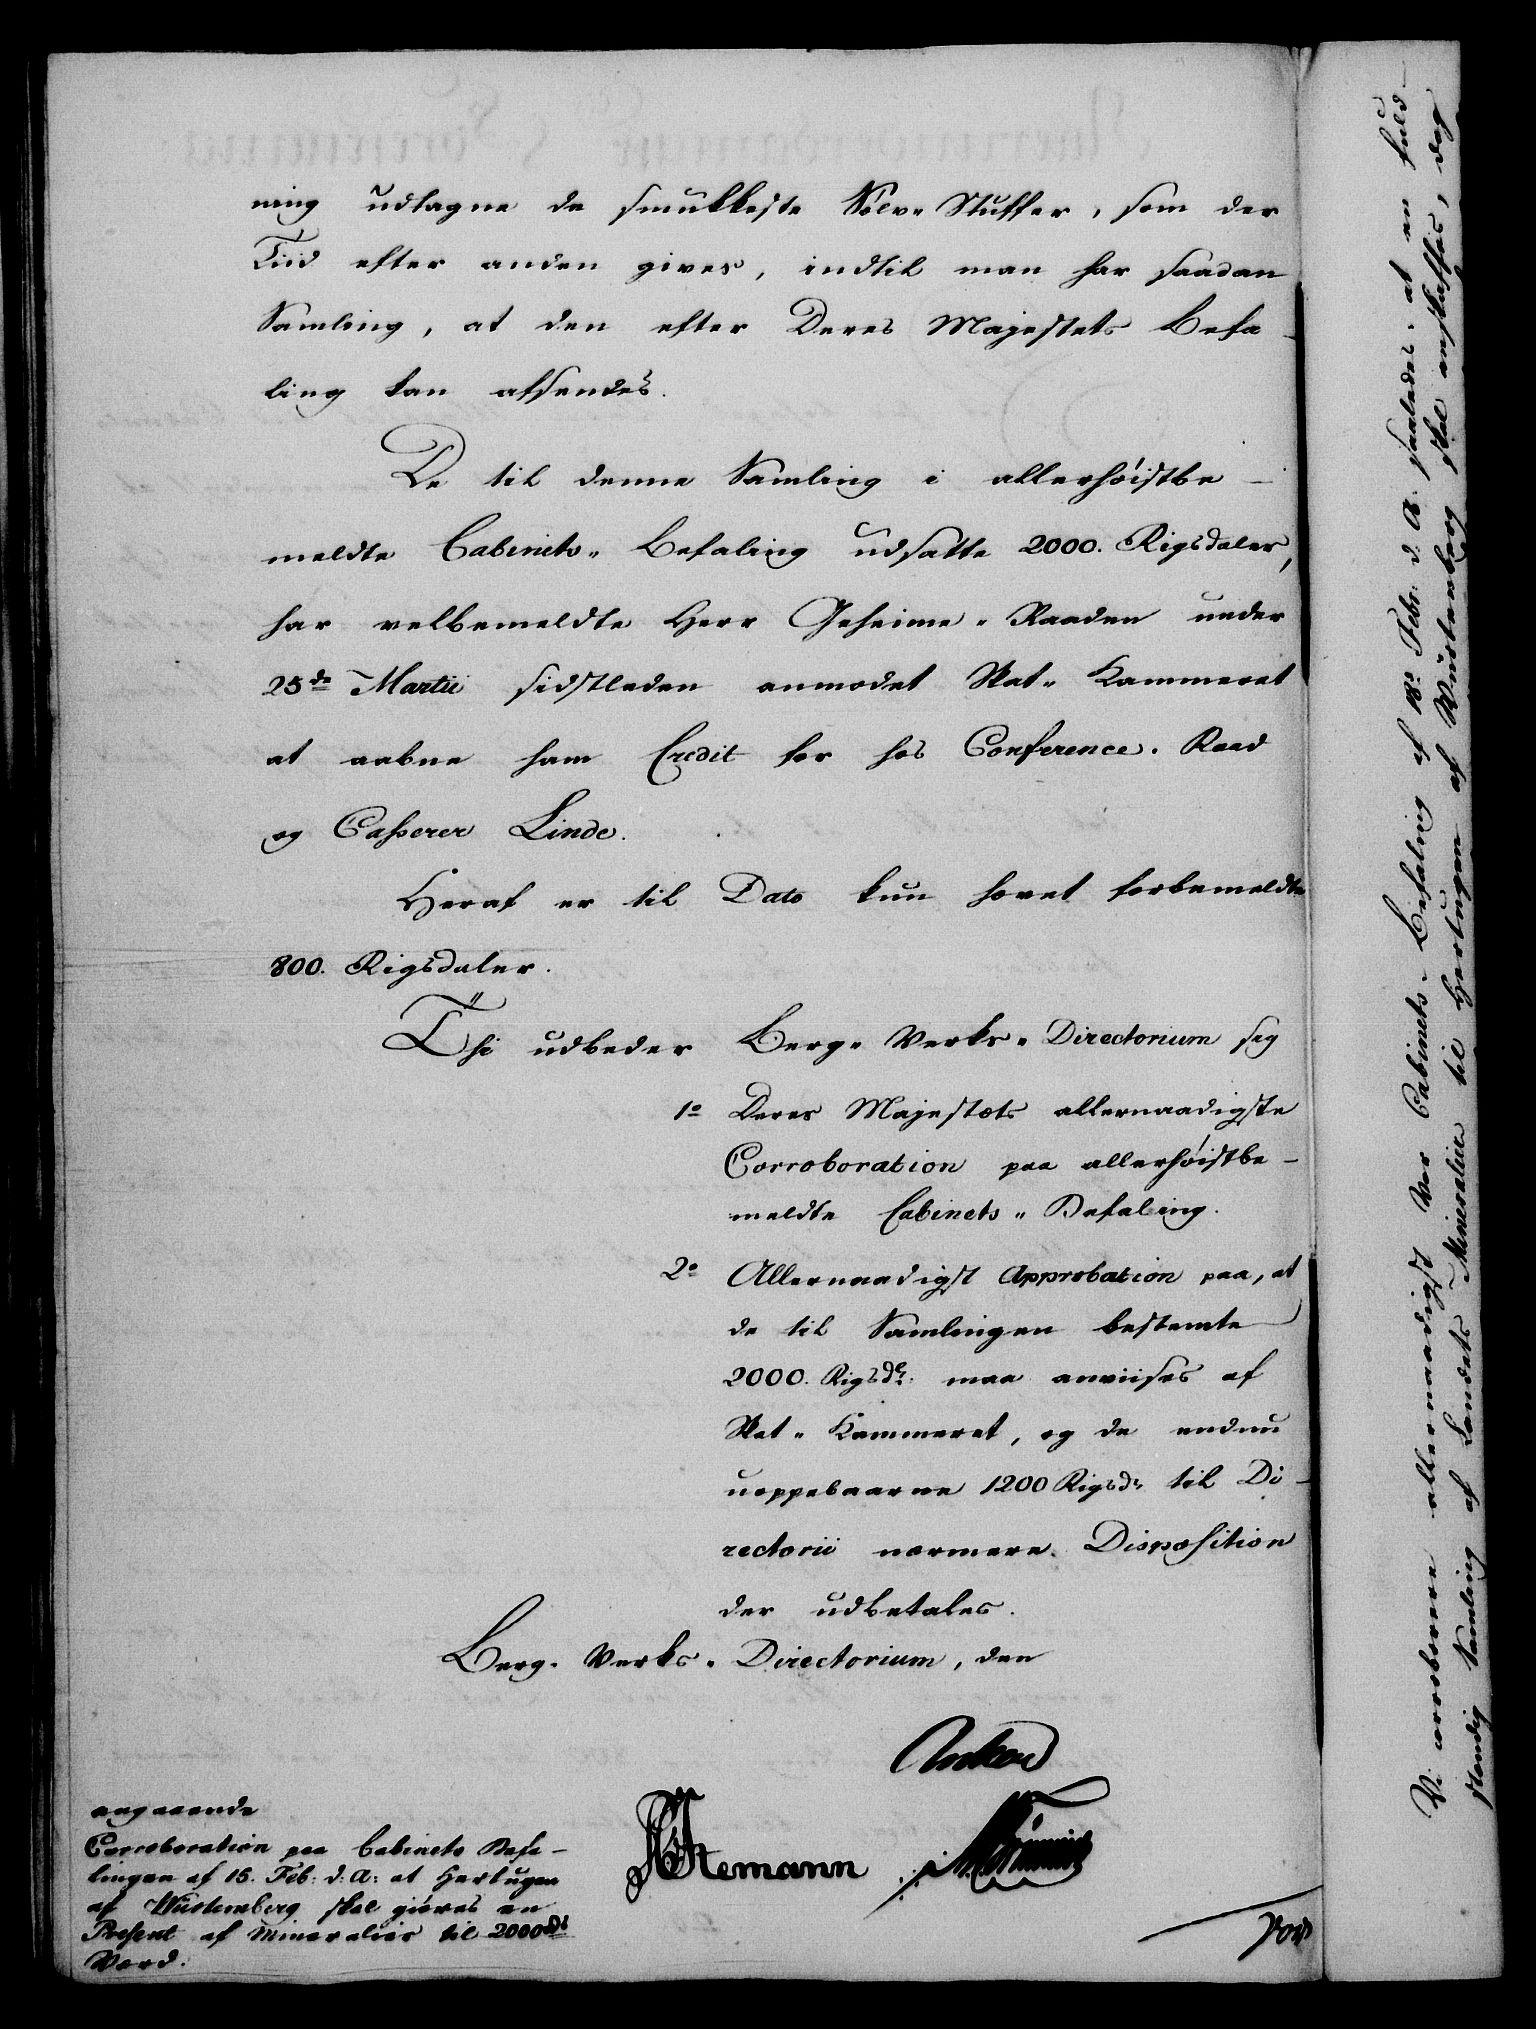 ning udtagne de smukkeste Sølv-Stuffer, som der
Tiid efter anden gives, indtil man har saadan
Samling, at den efter Deres Majestets Befa-
ling kan afsendes.
De til denne Samling i allerhøistbe-
meldte Cabinets-Befaling udsatte 2000. Rigsdaler,
har velbemeldte Herr Geheime-Raaden under
25de Martii sidstleden anmodet Skat-Kammeret
at aabne ham Credit for hos Conference-Raad
og Casserer Linde.
Heraf er til Dato kun hævet forbemeldte
800. Rigsdaler.
Thi udbeder Berg-Verks-Directorium sig
1o Deres Majestets allernaadigste
Corroboration paa allerhøistbe-
meldte Cabinets-Befaling.
2o Allernaadigst Approbation paa, at
de til Samlingen bestemte
2000. Rigsdr. maa anviises af
Skat-Kammeret, og de endnu
uoppebaarne 1200 Rigsdr til Di-
rectorii nærmere Disposition
der udbetales.
Berg-Verks-Directorium, den
Anker
angaaende
Corroboration paa Cabinets Befa-
lingen af 18. Feb: d: A: at Hertugen
af Würtemberg skal giøres en
Present af Mineralier til 2000rd
Værd.
Vi corroborere allernaadigst Vor Cabinets-Befaling af 18de Febr: d. A. saaledes: at en fuld-
stændig Samling af Landets Mineralier til Hertugen af Würtenberg skal anskaffes, dog